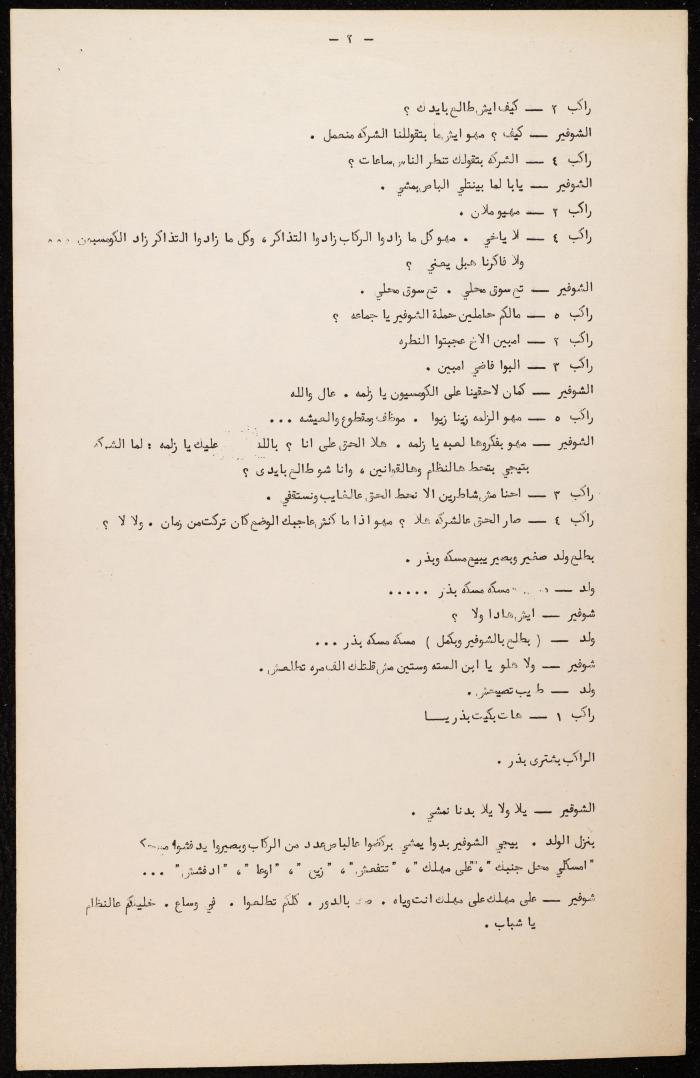 — ٢ —
راكب ٢ — كيف ايش طالع بايدك ؟
الشوفير — كيف ؟ مهو ايش ما بتقوللنا الشركه منعمل .
راكب ٤ — الشركه بتقولك تنطر الناس ساعات ؟
الشوفير — يابا لما بينتلي الباص بمشي .
راكب ٢ — مهيو ملان .
راكب ٤ — لا ياخي . مهو كل ما زادوا الركاب زادوا التذاكر ، وكل ما زادوا التذاكر زاد الكومسيون ...
ولا فاكرنا هبل يعني ؟
الشوفير — تع سوق محلي . تع سوق محلي .
راكب ٥ — مالكم حاملين حملة الشوفير يا جماعه ؟
راكب ٢ — امبين الاخ عجبتوا النطره
راكب ٣ — البوا فاضي امبين .
الشوفير — كمان لاحقينا على الكومسيون يا زلمه . عال والله
راكب ٥ — مهو الزلمه زينا زيوا . موظف ومقطوع والعيشه ...
الشوفير — مهو بفكروها لعبه يا زلمه . هلا الحق على انا ؟ بالله عليك يا زلمه : لما الشركه
بتيجي بتحط هالنظام وهالقوانين ، وانا شو طالع بايدى ؟
راكب ٣ — احنا مش شاطرين الا نحط الحق عالغايب ونستقفي .
راكب ٤ — صار الحق عالشركه هلا ؟ مهو اذا ما كنش عاجبك الوضع كان تركت من زمان . ولا لا ؟
بطلع ولد صغير وبصير يبيع مسكه وبذر .
ولد — مسكه مسكه بذر .....
شوفير — ايش هادا ولا ؟
ولد — ( بطلع بالشوفير وبكمل ) مسكه مسكه بذر ...
شوفير — ولا هلو يا ابن السته وستين مش قلتلك الف مره تطلعش .
ولد — طيب تصيحش .
راكب ١ — هات بكيت بذر يـا
الراكب بشترى بذر .
الشوفير — يلا ولا يلا بدنا نمشي .
بنزل الولد . بيجي الشوفير بدوا يمشي بركضوا عالباص عدد من الركاب وبصيروا يدفشوا
" امسكلي محل جنبك " ، " على مهلك " ، " تتفعش " ، " زيح " ، " اوعا " ، " ادفشش " ...
شوفير — على مهلك على مهلك انت وياه . بالدور . كلكم تطلعوا . في وساع . خليكم عالنظام
يا شباب .